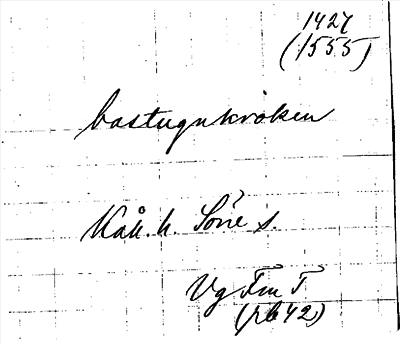 1427
(1555)
bastugnkröken
Kåk. h. Sörie s.
Vg Fm T
(rb 42)